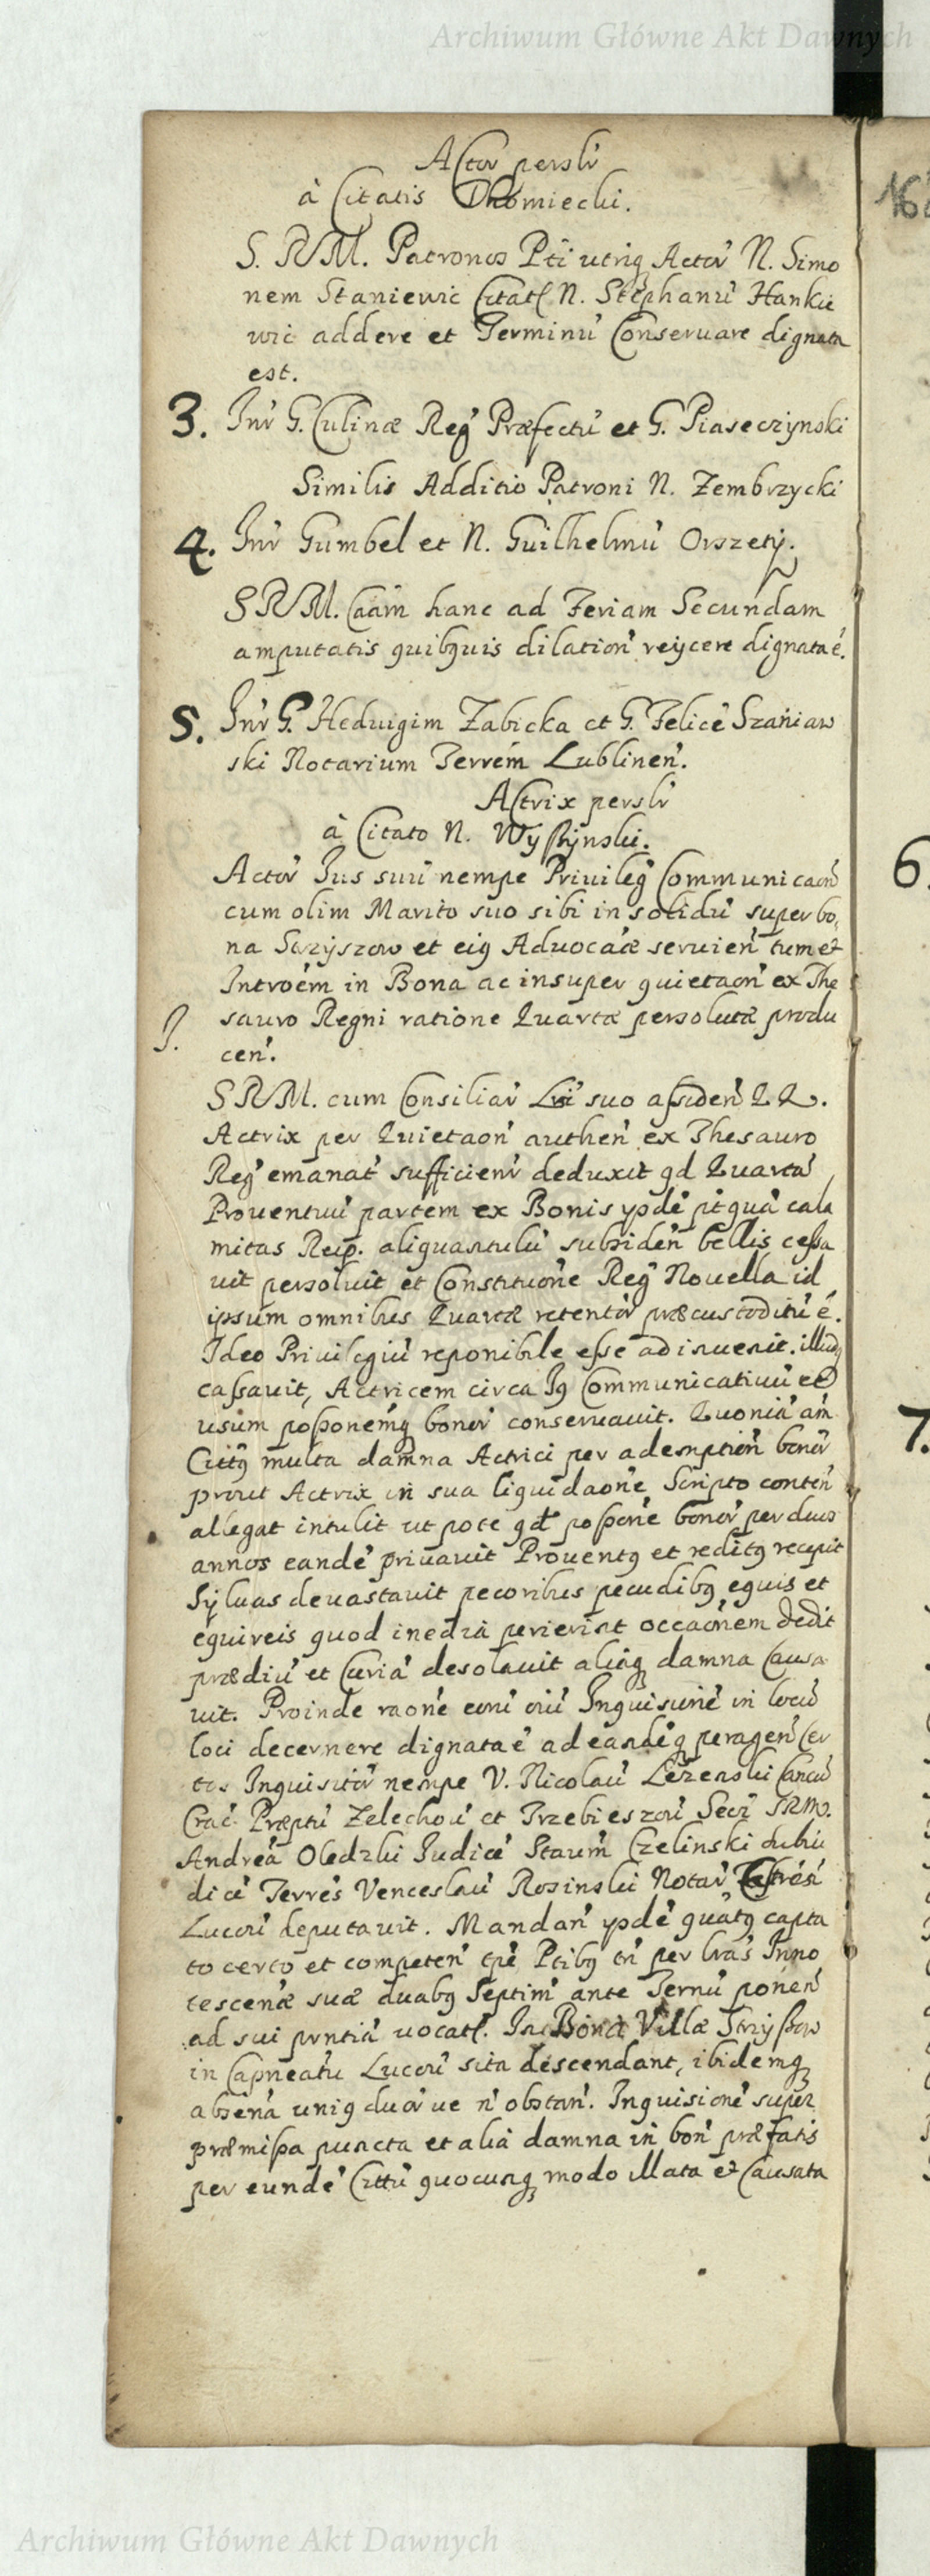 Archiwum Główne Akt Dawnych
Actor persłr
à Citatis Chomiecki.
S. R. M. Patronos Pti utriq Actor̃ N. Simo
nem Staniewic Citatɫ N. Stephanũ Hankie
wic addere et Terminũ Conservare dignata
est.
3. Intr G. Culinæ Reg̃ Præfectũ et G. Piaseczijnski
Similis Additio Patroni N. Zembrzycki
4. Intr Gumbel et N. Guilhelmũ Orszetÿ.
S R M. Caãm hanc ad Feriam Secundam
amputatis quibquis dilation̄ reijcere dignata ẽ.
5. Intr G. Hedvigim Zabicka et G. Felicẽ Szaniaw
ski Notarium Terrẽm Lublineñ.
Actrix persłr
à Citato N. Wyßÿnski.
Actor̃ Jus suũ nempe Privileg̃ Communicaoñ
cum olim Marito suo sibi in solidũ super bo,
na Strzyszow et eiq Advocãæ servieñ tum et
Introẽm in Bona ac insuper quietaoñ ex The
sauro Regni ratione Quartæ persolutæ produ
J.
ceñ.
S R M. cum Consiliar̃ suo assideñ
Actrix per Quietaoñ autheñ ex Thesauro
Reg̃ emanat̃ sufficientr̃ deduxit qd Quartã
Proventuũ partem ex Bonis ypdẽ ptquã cala
mitas Reip. aliquantulũ subsideñ bellis cessa
vit persolvit et Constituõne Reg̃ Novella id
ipsum omnibus Quartæ retentor̃ præcustoditũ ẽ.
Ideo Privilegiũ reponibile esse adinvenit. illudq
cassavit, Actricem circa Jq Communicativũ et
usum poßonẽmq bonor̃ conservavit. Quoniã añ
Cittq multa damna Actrici per ademptioñ bonor̃
prout Actrix in sua liquidaonẽ Scripto conteñ
allegat intulit ut pote qd poßonẽ bonor̃ per duos
annos eandẽ privavit Proventq et reditq recepit
Sylvas devastavit pecoribus pecudibq equis et
equireis quod inediã perierint occaõnem dedit
prædiũ et Curiã desolavit aliaq damna Causa
vit. Proinde raonẽ eorũ oiũ Inquisionẽ in locũ
loci decernere dignata ẽ ad eandẽq perageñ Cer
tos Inquisitor̃ nempe V. Nicolaũ Leżenski Cancũ
Crac̃ Præptũ Zelechoũ et Trzebieszoũ Secr̃ SRM.
Andreã Oledzki Judicẽ Staum̃ Czelinski Subiu
dicẽ Terrẽs Venceslaũ Rosinski Notar̃ Castreñ
Lucoũ deputavit. Mandañ ypdẽ quatq capta
to certo et competeñ tpẽ Ptibq tñ per lrãs Inno
tescenæ suæ duabq Septim̃ ante Ternũ poneñ
ad sui pntiã vocatɫ. In Bona Villæ Strzyßow
in Capneatu Lucoũ sita descendant, ibidemq
absenã uniq duor̃ ve ñ obstañ. Inquisionẽ super
præmißa puncta et aliã damna in boñ præfatis
per eundẽ Cittũ quocunq modo illata et Causata
6.
7.
Archiwum Główne Akt Dawnych